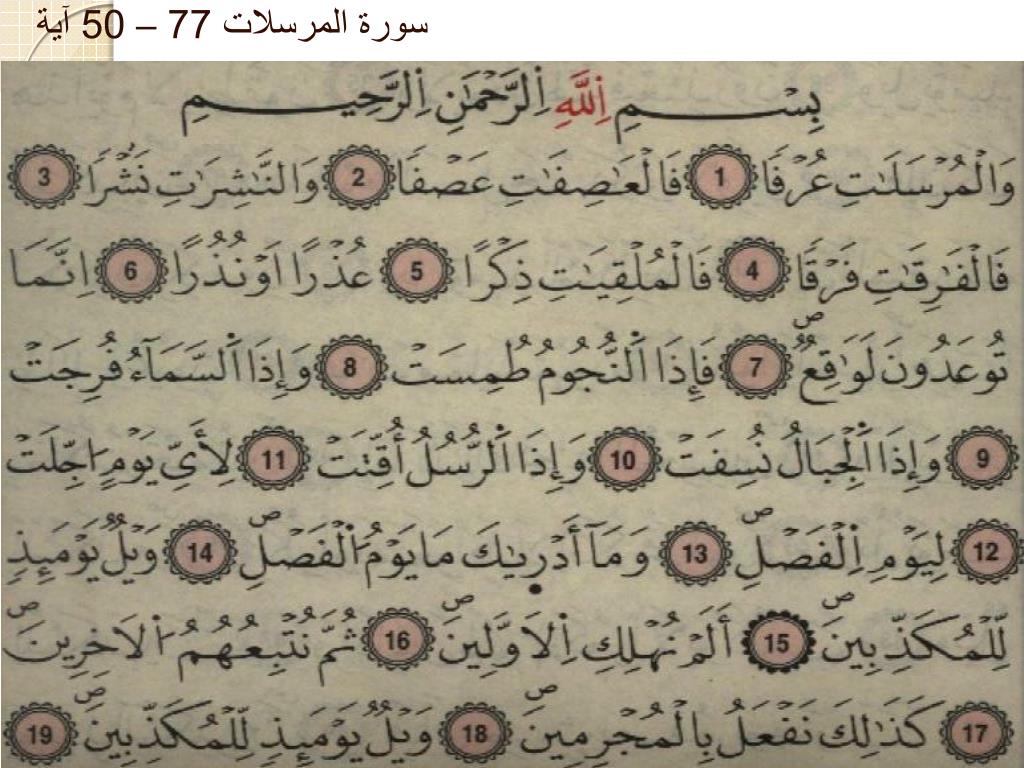 سورة المرسلات 77 – 50 آية
بِسْمِ اِ۬للَّهِ اِ۬لرَّحْمَٰنِ اِ۬لرَّحِيمِ
وَالْمُرْسَلَٰتِ عُرْفٗا 1 فَالْعَٰصِفَٰتِ عَصْفٗا 2 وَالنَّٰشِرَٰتِ نَشْرٗا 3
فَالْفَٰرِقَٰتِ فَرْقٗا 4 فَالْمُلْقِيَٰتِ ذِكْرًا 5 عُذْرًا اَوْ نُذُرًا 6 اِنَّمَا
تُوعَدُونَ لَوَٰقِعٞۖ 7 فَإِذَا اَ۬لنُّجُومُ طُمِسَتْ 8 وَإِذَا اَ۬لسَّمَآءُ فُرِجَتْ
9 وَإِذَا اَ۬لْجِبَالُ نُسِفَتْ 10 وَإِذَا اَ۬لرُّسُلُ أُقِّتَتْ 11 لِأَيِّ يَوْمٍ اُجِّلَتْ
12 لِيَوْمِ اِ۬لْفَصْلِۖ 13 وَمَآ أَدْر۪يٰكَ مَا يَوْمُ اُ۬لْفَصْلِۖ 14 وَيْلٞ يَوْمَئِذٖ
لِّلْمُكَذِّبِينَۖ 15 أَلَمْ نُهْلِكِ اِ۬لَاوَّلِينَۖ 16 ثُمَّ نُتْبِعُهُمُ اُ۬لَاخِرِينَۖ
17 كَذَٰلِكَ نَفْعَلُ بِالْمُجْرِمِينَۖ 18 وَيْلٞ يَوْمَئِذٖ لِّلْمُكَذِّبِينَۖ 19